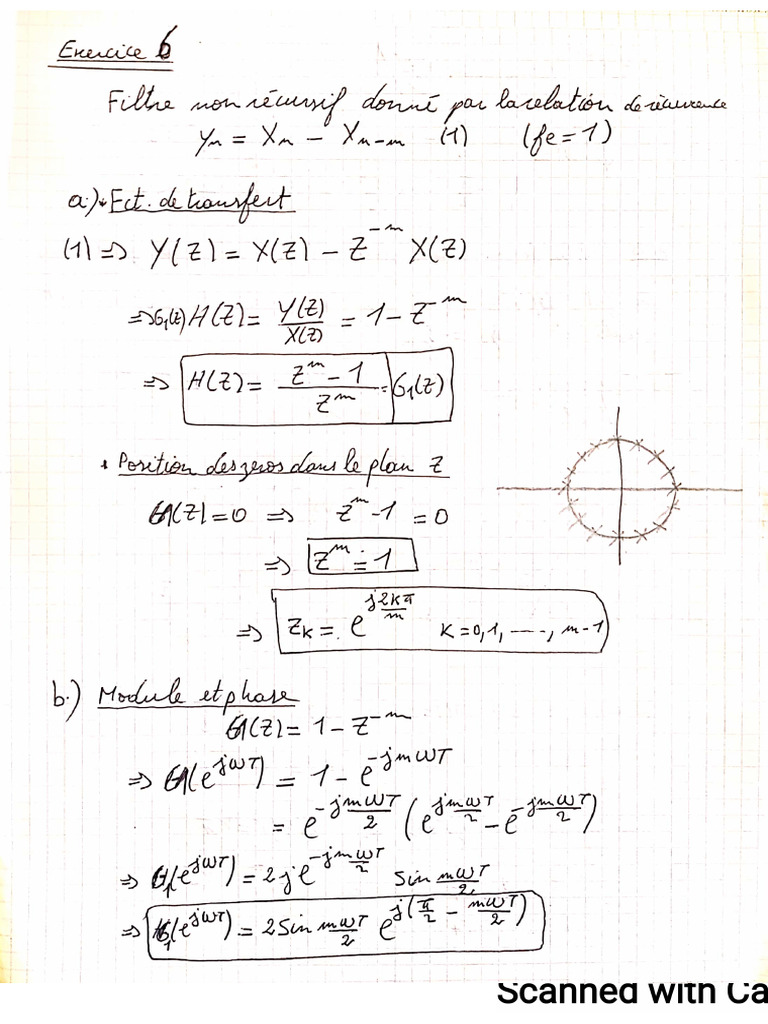 Exercice 6
Filtre non récursif donné par la relation de récurrence
yn = Xn - Xn-m (1) (fe = 1)
a.) • Fct. de transfert
(1) ⇒ Y(Z) = X(Z) - Z^-m X(Z)
⇒ G1(z) H(Z) = Y(Z)/X(Z) = 1 - Z^-m
⇒ H(Z) = (Z^m - 1)/Z^m = G1(Z)
• Position des zeros dans le plan Z
G1(Z) = 0 ⇒ Z^m - 1 = 0
⇒ Z^m = 1
⇒ Zk = e^(j2kπ/m) K = 0, 1, ----, m-1
b.) Module et phase
G1(Z) = 1 - Z^-m
⇒ G1(e^jωT) = 1 - e^-jmωT
= e^(-jmωT/2) (e^(jmωT/2) - e^(-jmωT/2))
⇒ G1(e^jωT) = 2j e^(-jmωT/2) Sin mωT/2
⇒ G1(e^jωT) = 2 Sin mωT/2 e^(j(π/2 - mωT/2))
Scanned with Ca